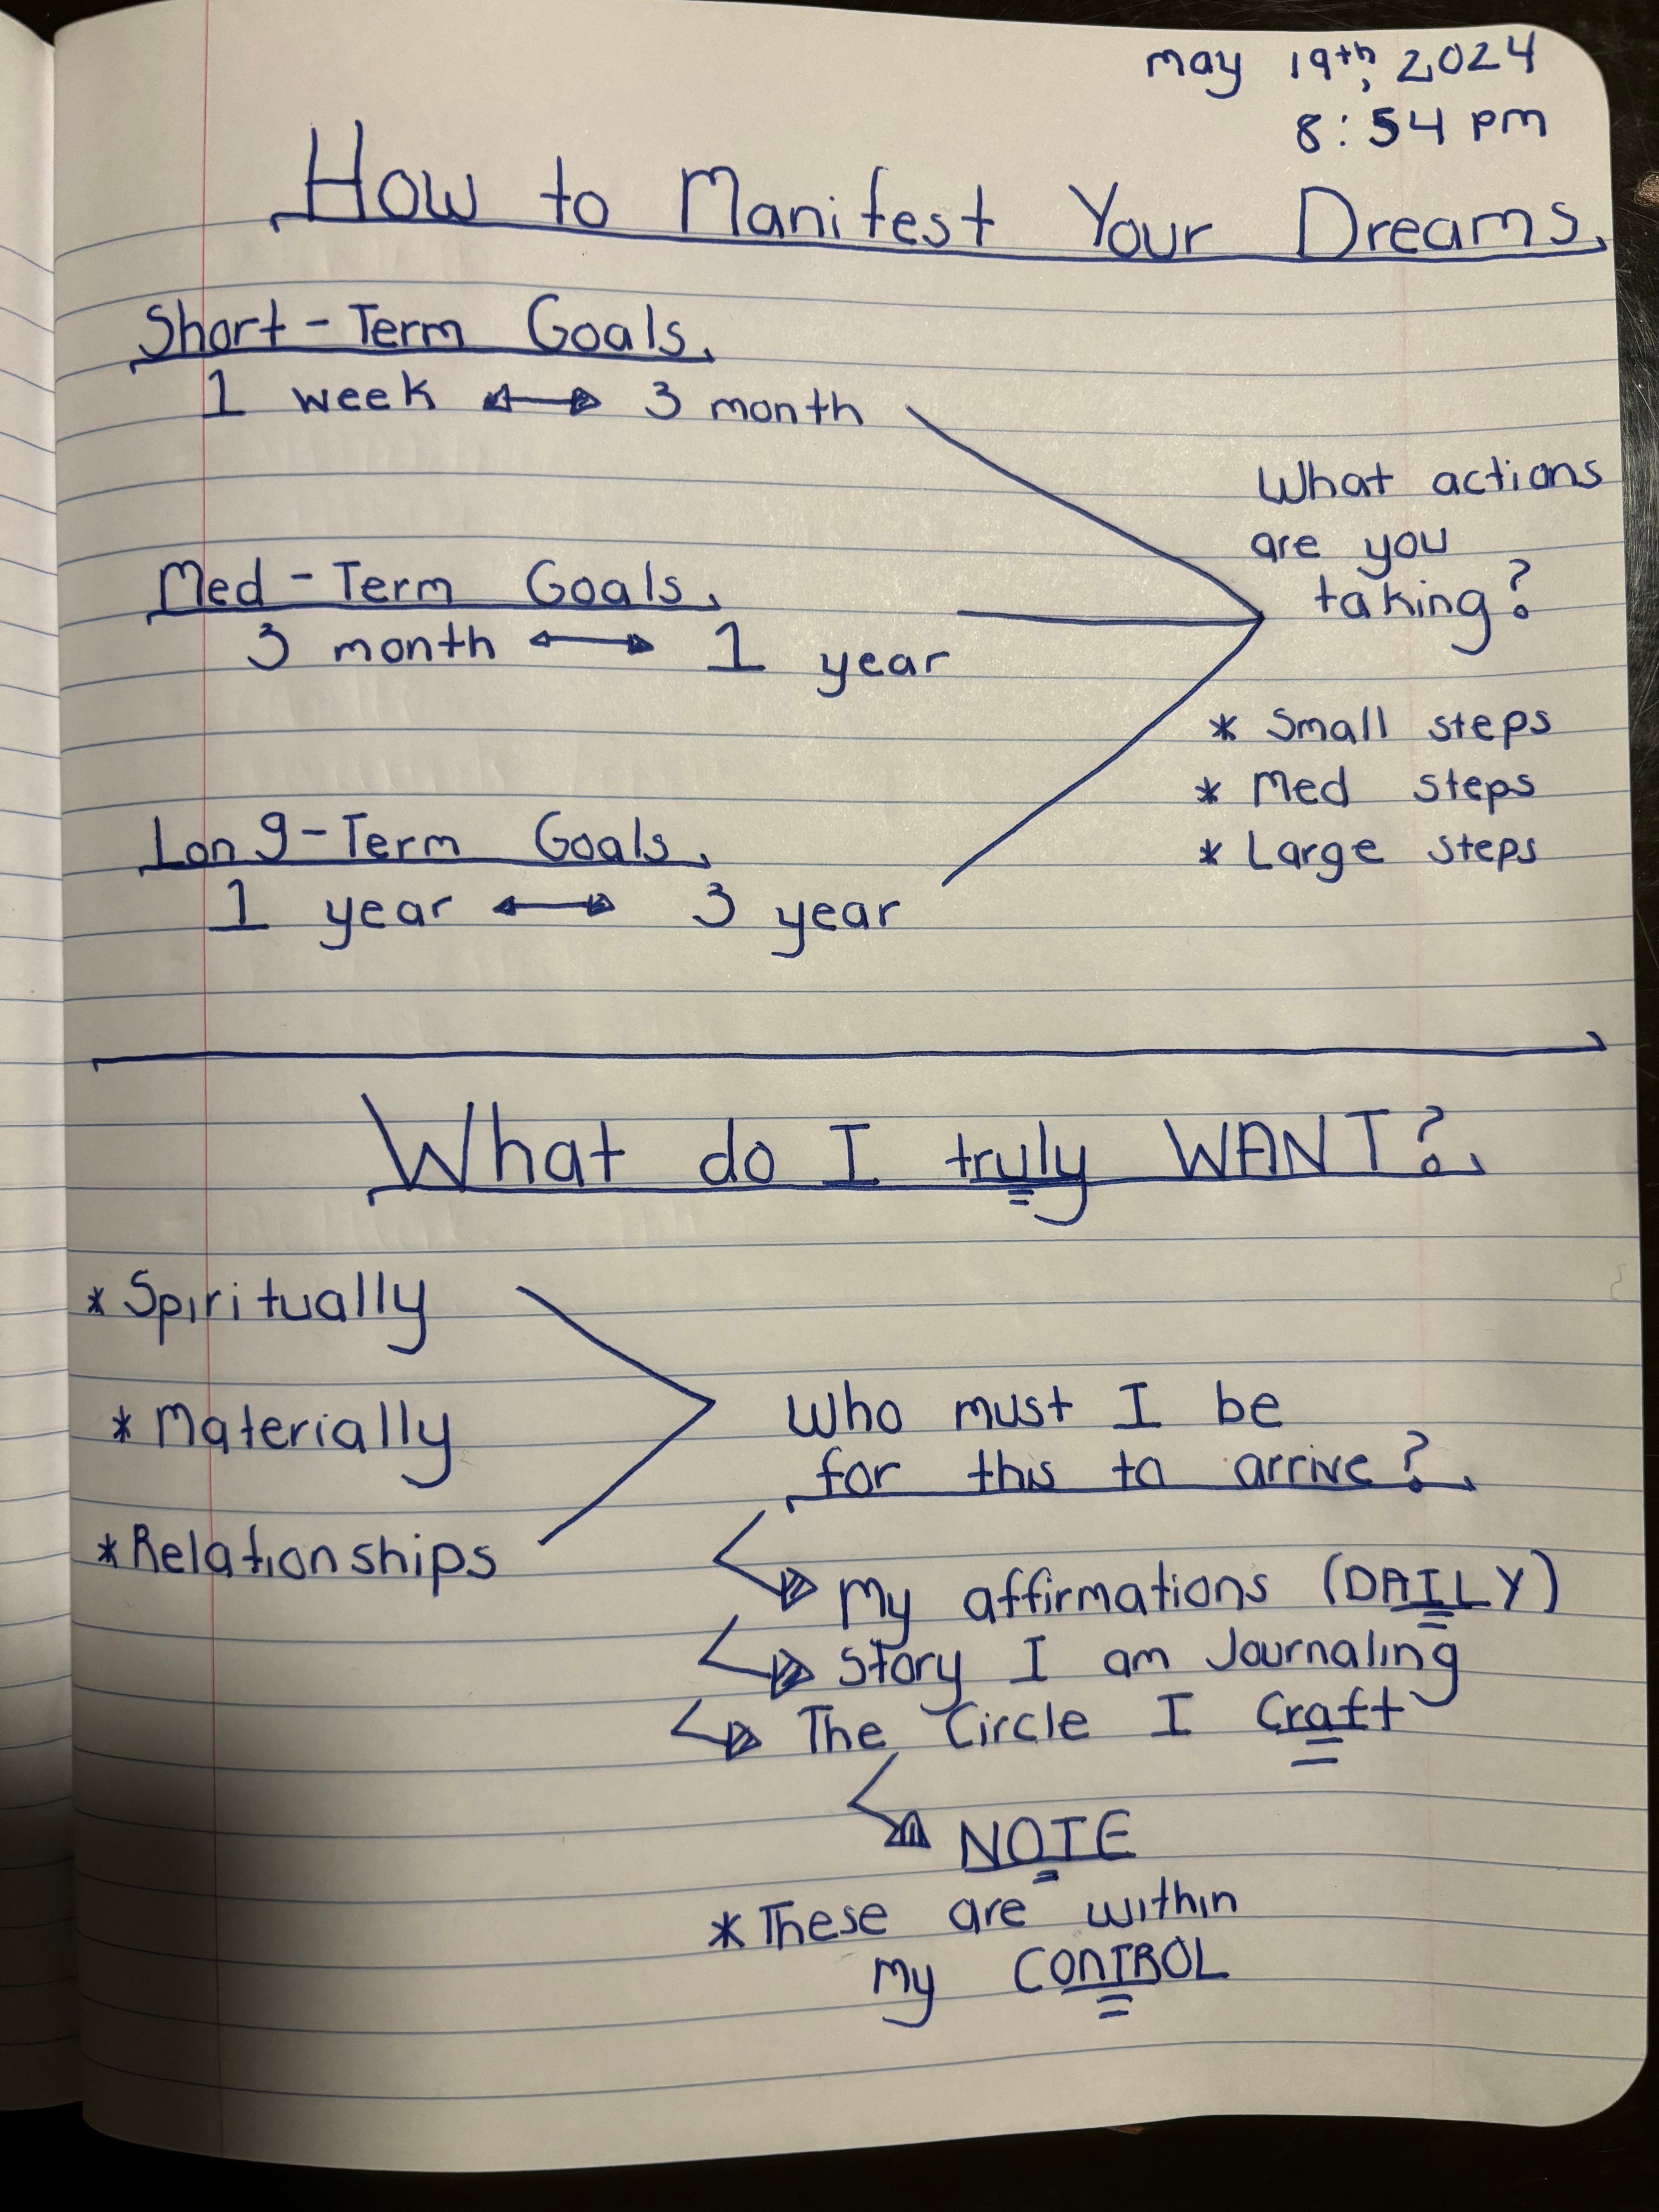 may 19th, 2024
8:54 pm
How to Manifest Your Dreams
Short-Term Goals
1 week ↔ 3 month
What actions
are you
taking?
Med-Term Goals
3 month ↔ 1 year
* Small steps
* Med steps
* Large steps
Long-Term Goals
1 year ↔ 3 year
What do I truly WANT?
* Spiritually
* Materially
* Relationships
Who must I be
for this to arrive?
My affirmations (DAILY)
Story I am Journaling
The Circle I Craft
NOTE
* These are within
my CONTROL